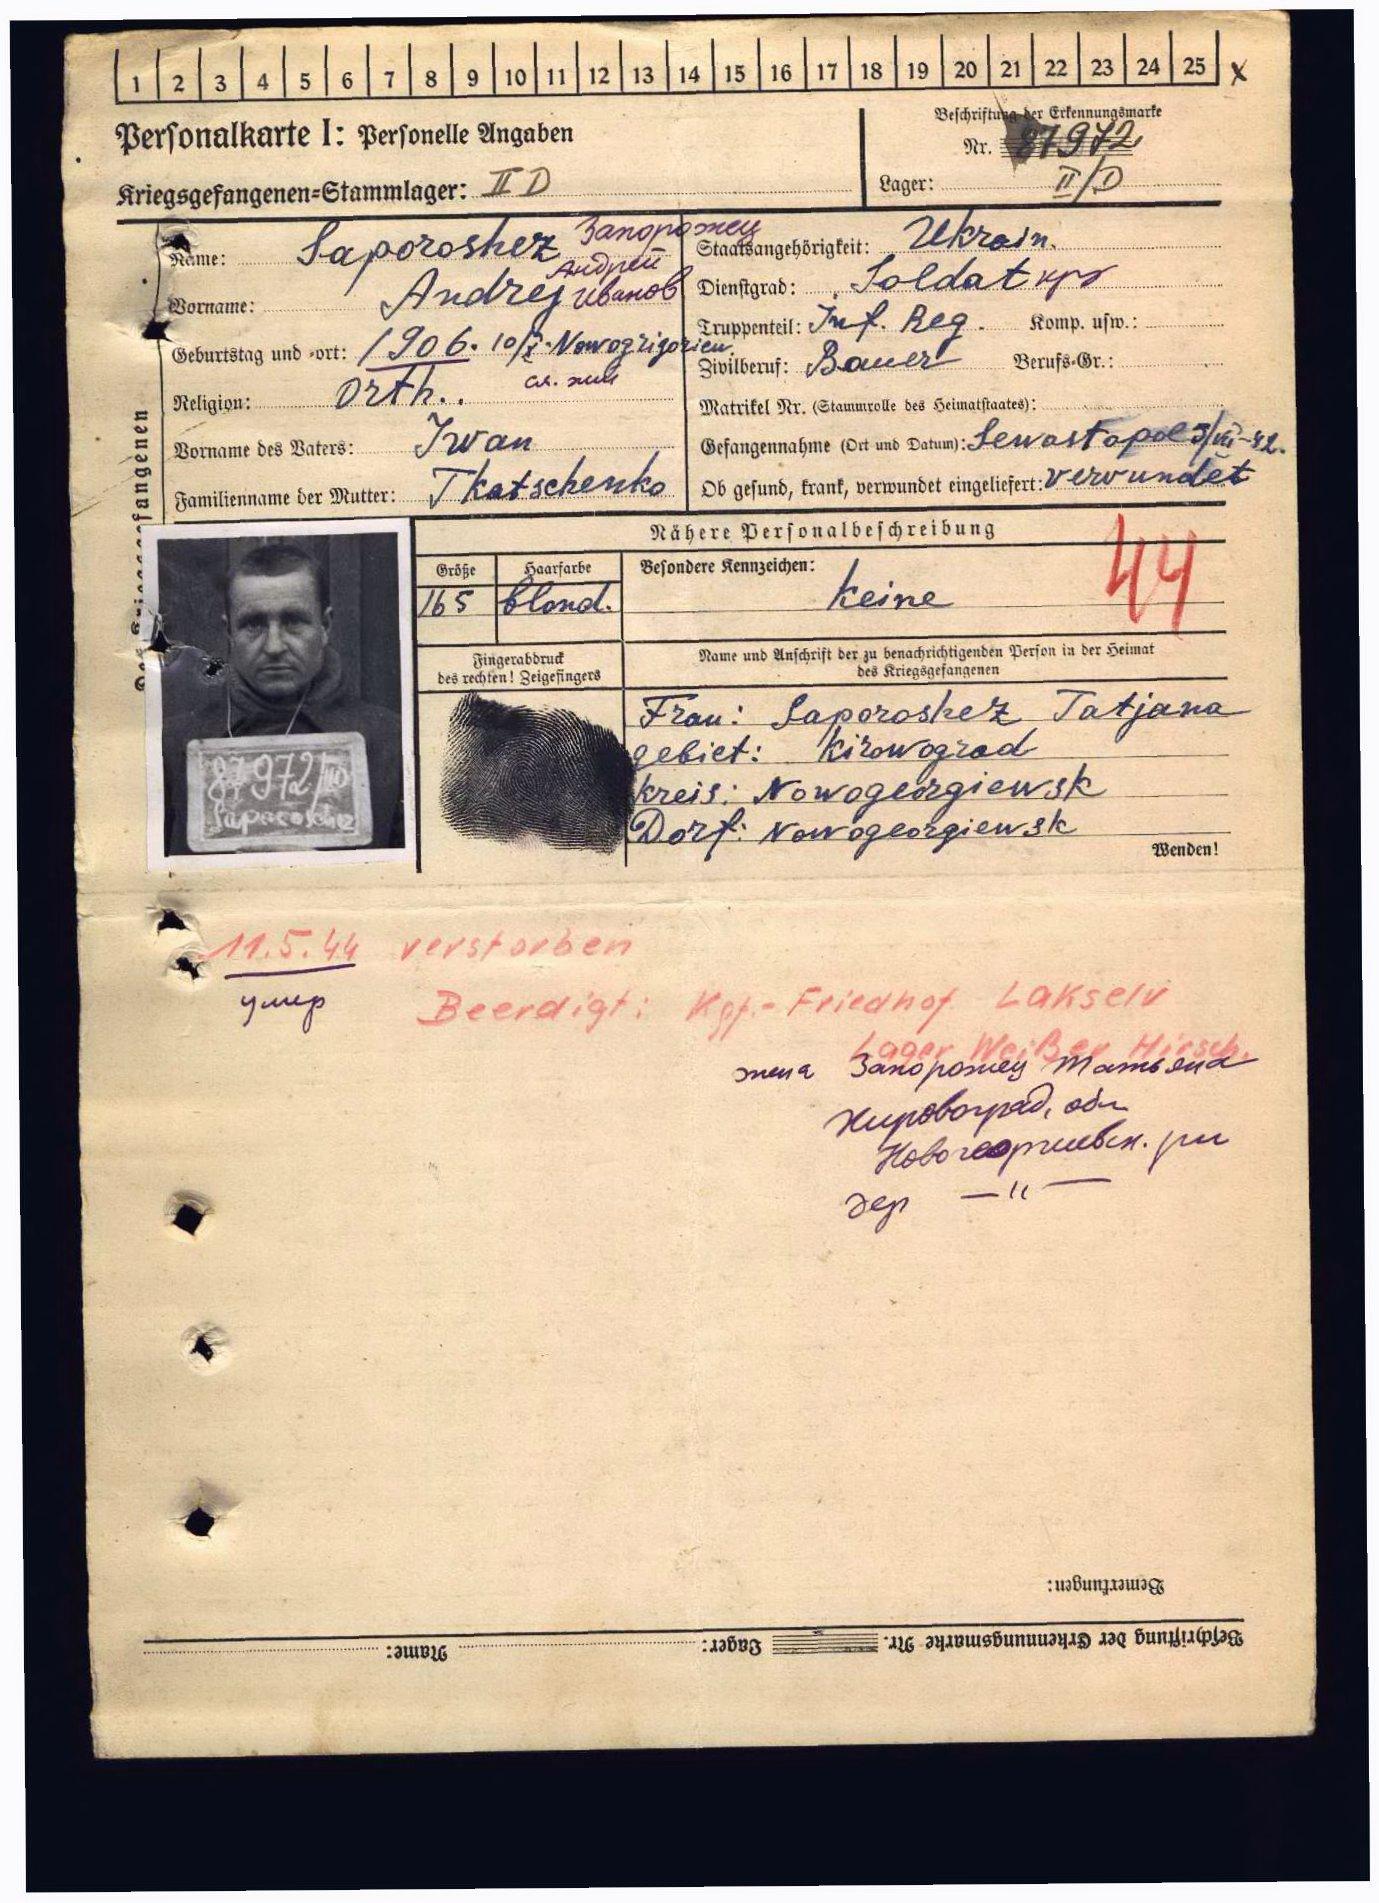 1 2 3 4 5 6 7 8 9 10 11 12 13 14 15 16 17 18 19 20 21 22 23 24 25 x
Personalkarte I: Personelle Angaben
Beschriftung der Erkennungsmarke
Nr. 87972
Kriegsgefangenen-Stammlager: II D
Lager: II/D
Name: Saporoshez Запорожец
Vorname: Andrej Андрей Иванов
Geburtstag und -ort: 1906. 10/X. Nowogrigoriew.
см. жит
Religion: Orth..
Vorname des Vaters: Iwan
Familienname der Mutter: Tkatschenko
Staatsangehörigkeit: Ukrain.
Dienstgrad: Soldat кр
Truppenteil: Inf. Reg. Komp. usw.:
Zivilberuf: Bauer Berufs-Gr.:
Matrikel Nr. (Stammrolle des Heimatstaates):
Gefangennahme (Ort und Datum): Sewastopol 3/VII-42.
Ob gesund, krank, verwundet eingeliefert: verwundet
Des Kriegsgefangenen
Nähere Personalbeschreibung
Größe Haarfarbe Besondere Kennzeichen:
165 blond. keine
44
Fingerabdruck
des rechten! Zeigefingers
Name und Anschrift der zu benachrichtigenden Person in der Heimat
des Kriegsgefangenen
Frau: Saporoshez Tatjana
gebiet: Kirowograd
Kreis: Nowogeorgiewsk
Dorf: Nowogeorgiewsk
87972/IID
Saporoschez
Wenden!
11.5.44 verstorben
умер
Beerdigt: Kgf.-Friedhof Lakselv
Lager Weißer Hirsch.
жена Запорожец Татьяна
Кировоград, обл
Новогеоргиевск. рн
дер —"—
Bemerkungen:
Beschriftung der Erkennungsmarke Nr. Lager: Name: